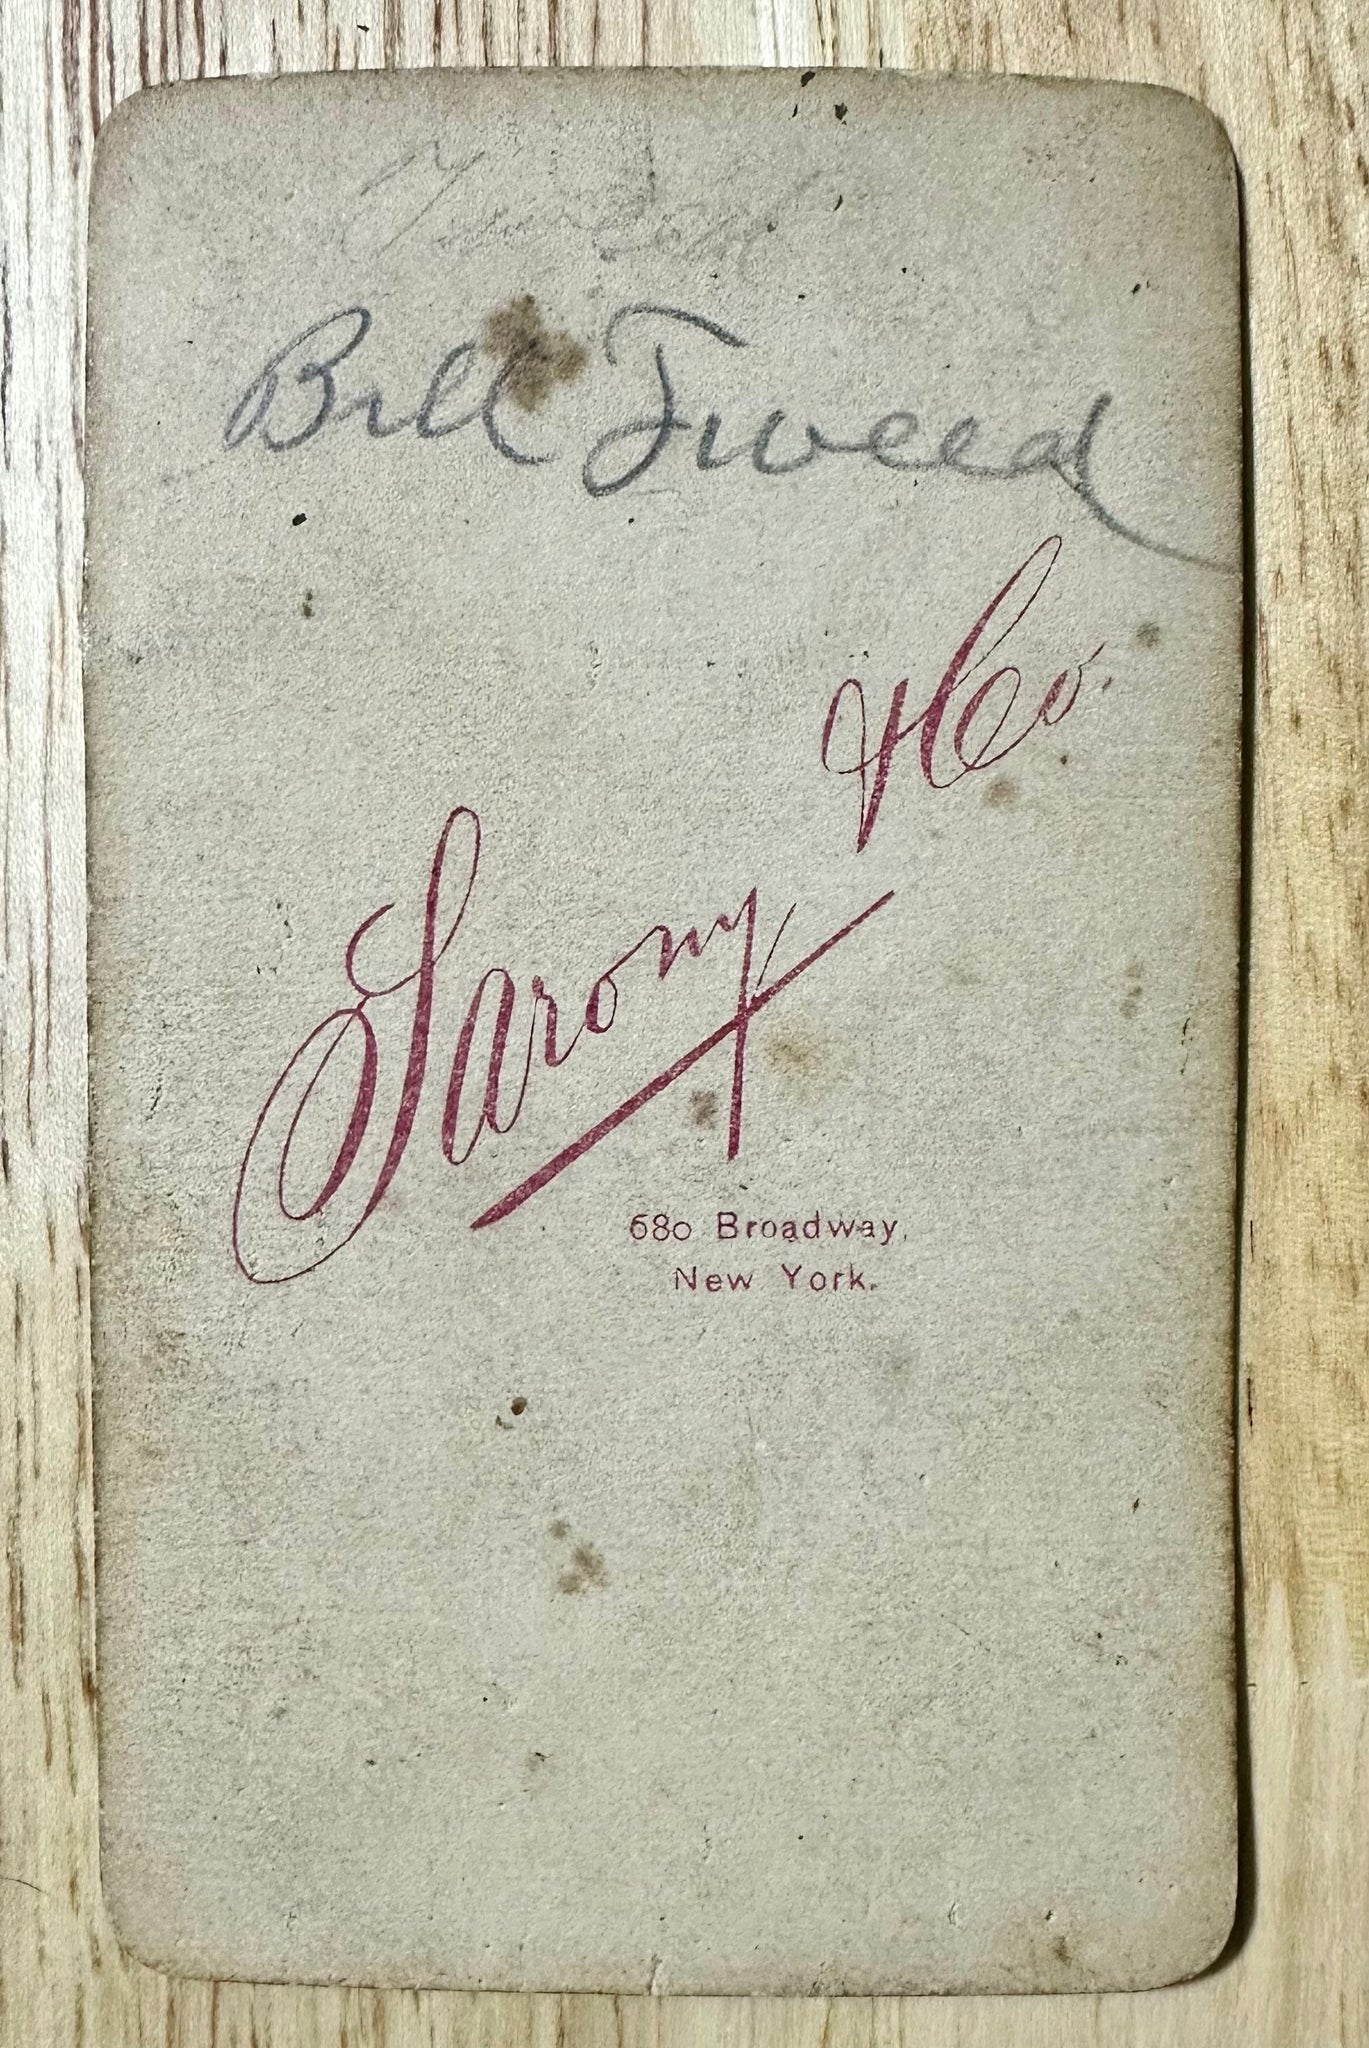 Bill Tweed
Sarony & Co.
680 Broadway,
New York.